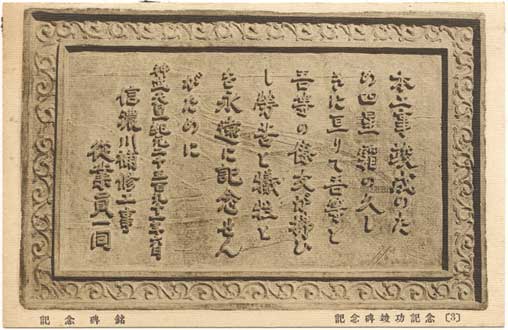 本工事竣成のた
め四星霜の久し
きに亙りて吾等と
吾等の僚友が拂ひ
し勞苦と犠牲と
を永遠に記念せん
がために
紀元二千五百九十一年六月
信濃川補修工事
從業員一同
記念碑銘
記念碑竣功記念 [3]